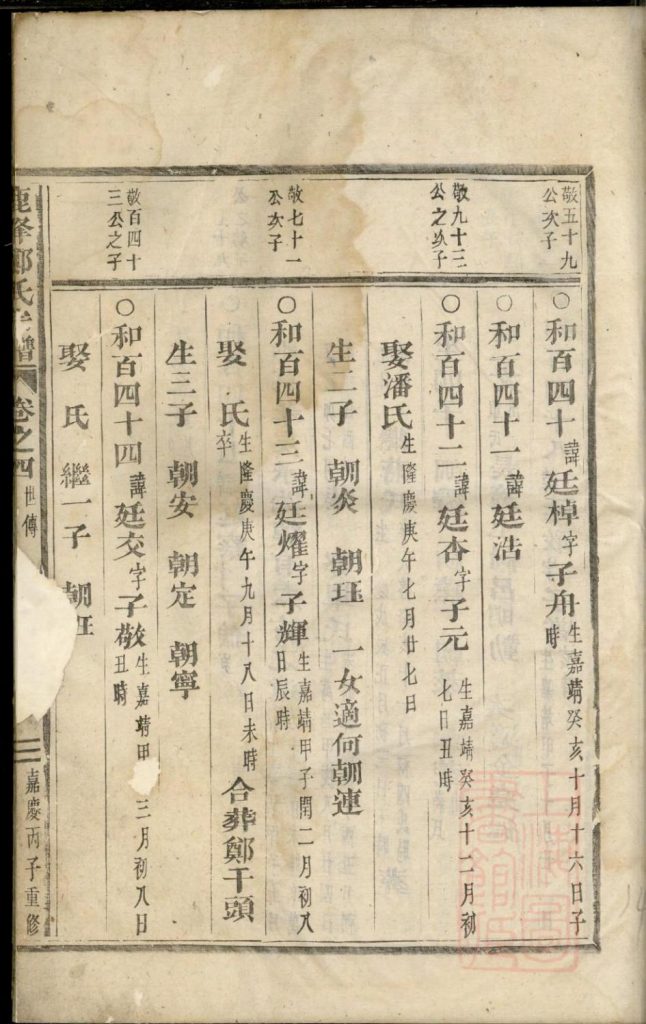 敬五十九
公次子
○和百四十諱廷棹字子舟生嘉靖癸亥十月十六日子
時
○和百四十一諱廷浩
敬九十三
公之次子
○和百四十二諱廷杏字子元生嘉靖癸亥十二月初
七日丑時
娶潘氏生隆慶庚午七月廿七日
生二子 朝炎 朝珏 一女適何朝連
敬七十一
公次子
○和百四十三諱廷燿字子輝生嘉靖甲子閏二月初八
日辰時
娶 氏生隆慶庚午九月十八日未時 合葬鄭干頭
卒
生三子 朝安 朝定 朝寧
敬百四十
三公之子
○和百四十四諱廷交字子敬生嘉靖甲 三月初八日
丑時
娶 氏 繼一子 朝珏
鹿峯鄭氏 譜 卷之四 世傳 三 嘉慶丙子重修